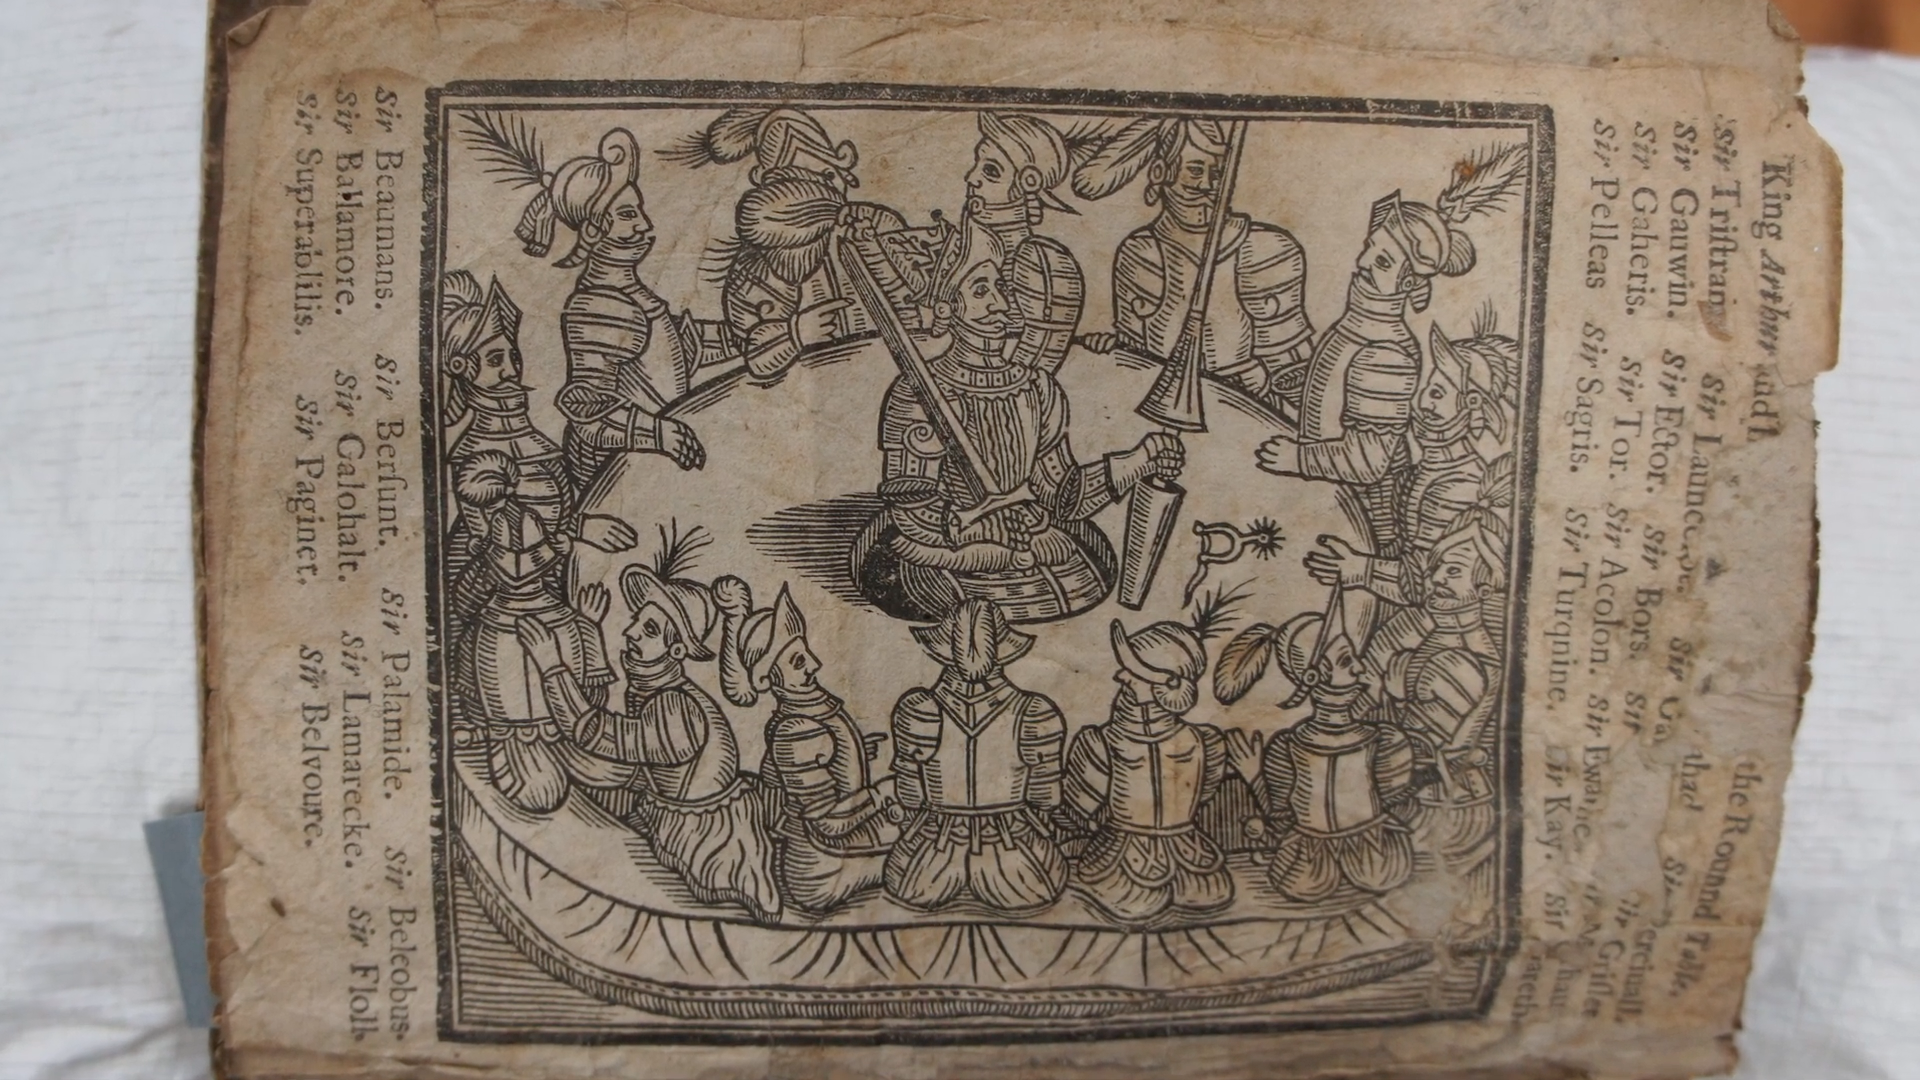 King Arthur and the Roound Table.
Sir Triſtram Sir Launce
Sir Gauwin. Sir Ector. Sir Bors. Sir
Sir Gaheris. Sir Tor. Sir Acolon. Sir Ewaine Sir Griſlet
Sir Pelleas Sir Sagris. Sir Turquine. Sir Kay. Sir
Sir Beaumans. Sir Berſunt. Sir Palamide. Sir Beleobus.
Sir Ballamore. Sir Galohalt. Sir Lamarecke. Sir Floll.
Sir Superabilis. Sir Paginet. Sir Belvoure.